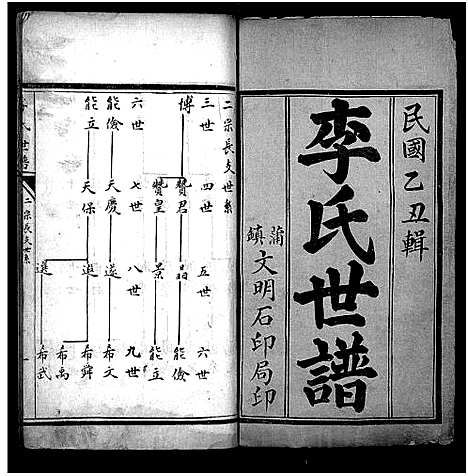 民國乙丑輯
李氏世譜
蒲鎮文明石印局印
二宗長支世系
三世 四世 五世 六世
博 贊君 晶 能儉
贊皇 景 能立
六世 七世 八世 九世
能儉 天慶 遂 希文
能立 天保 追 希舜
希禹
選 希武
氏世譜
二宗長支世系
一